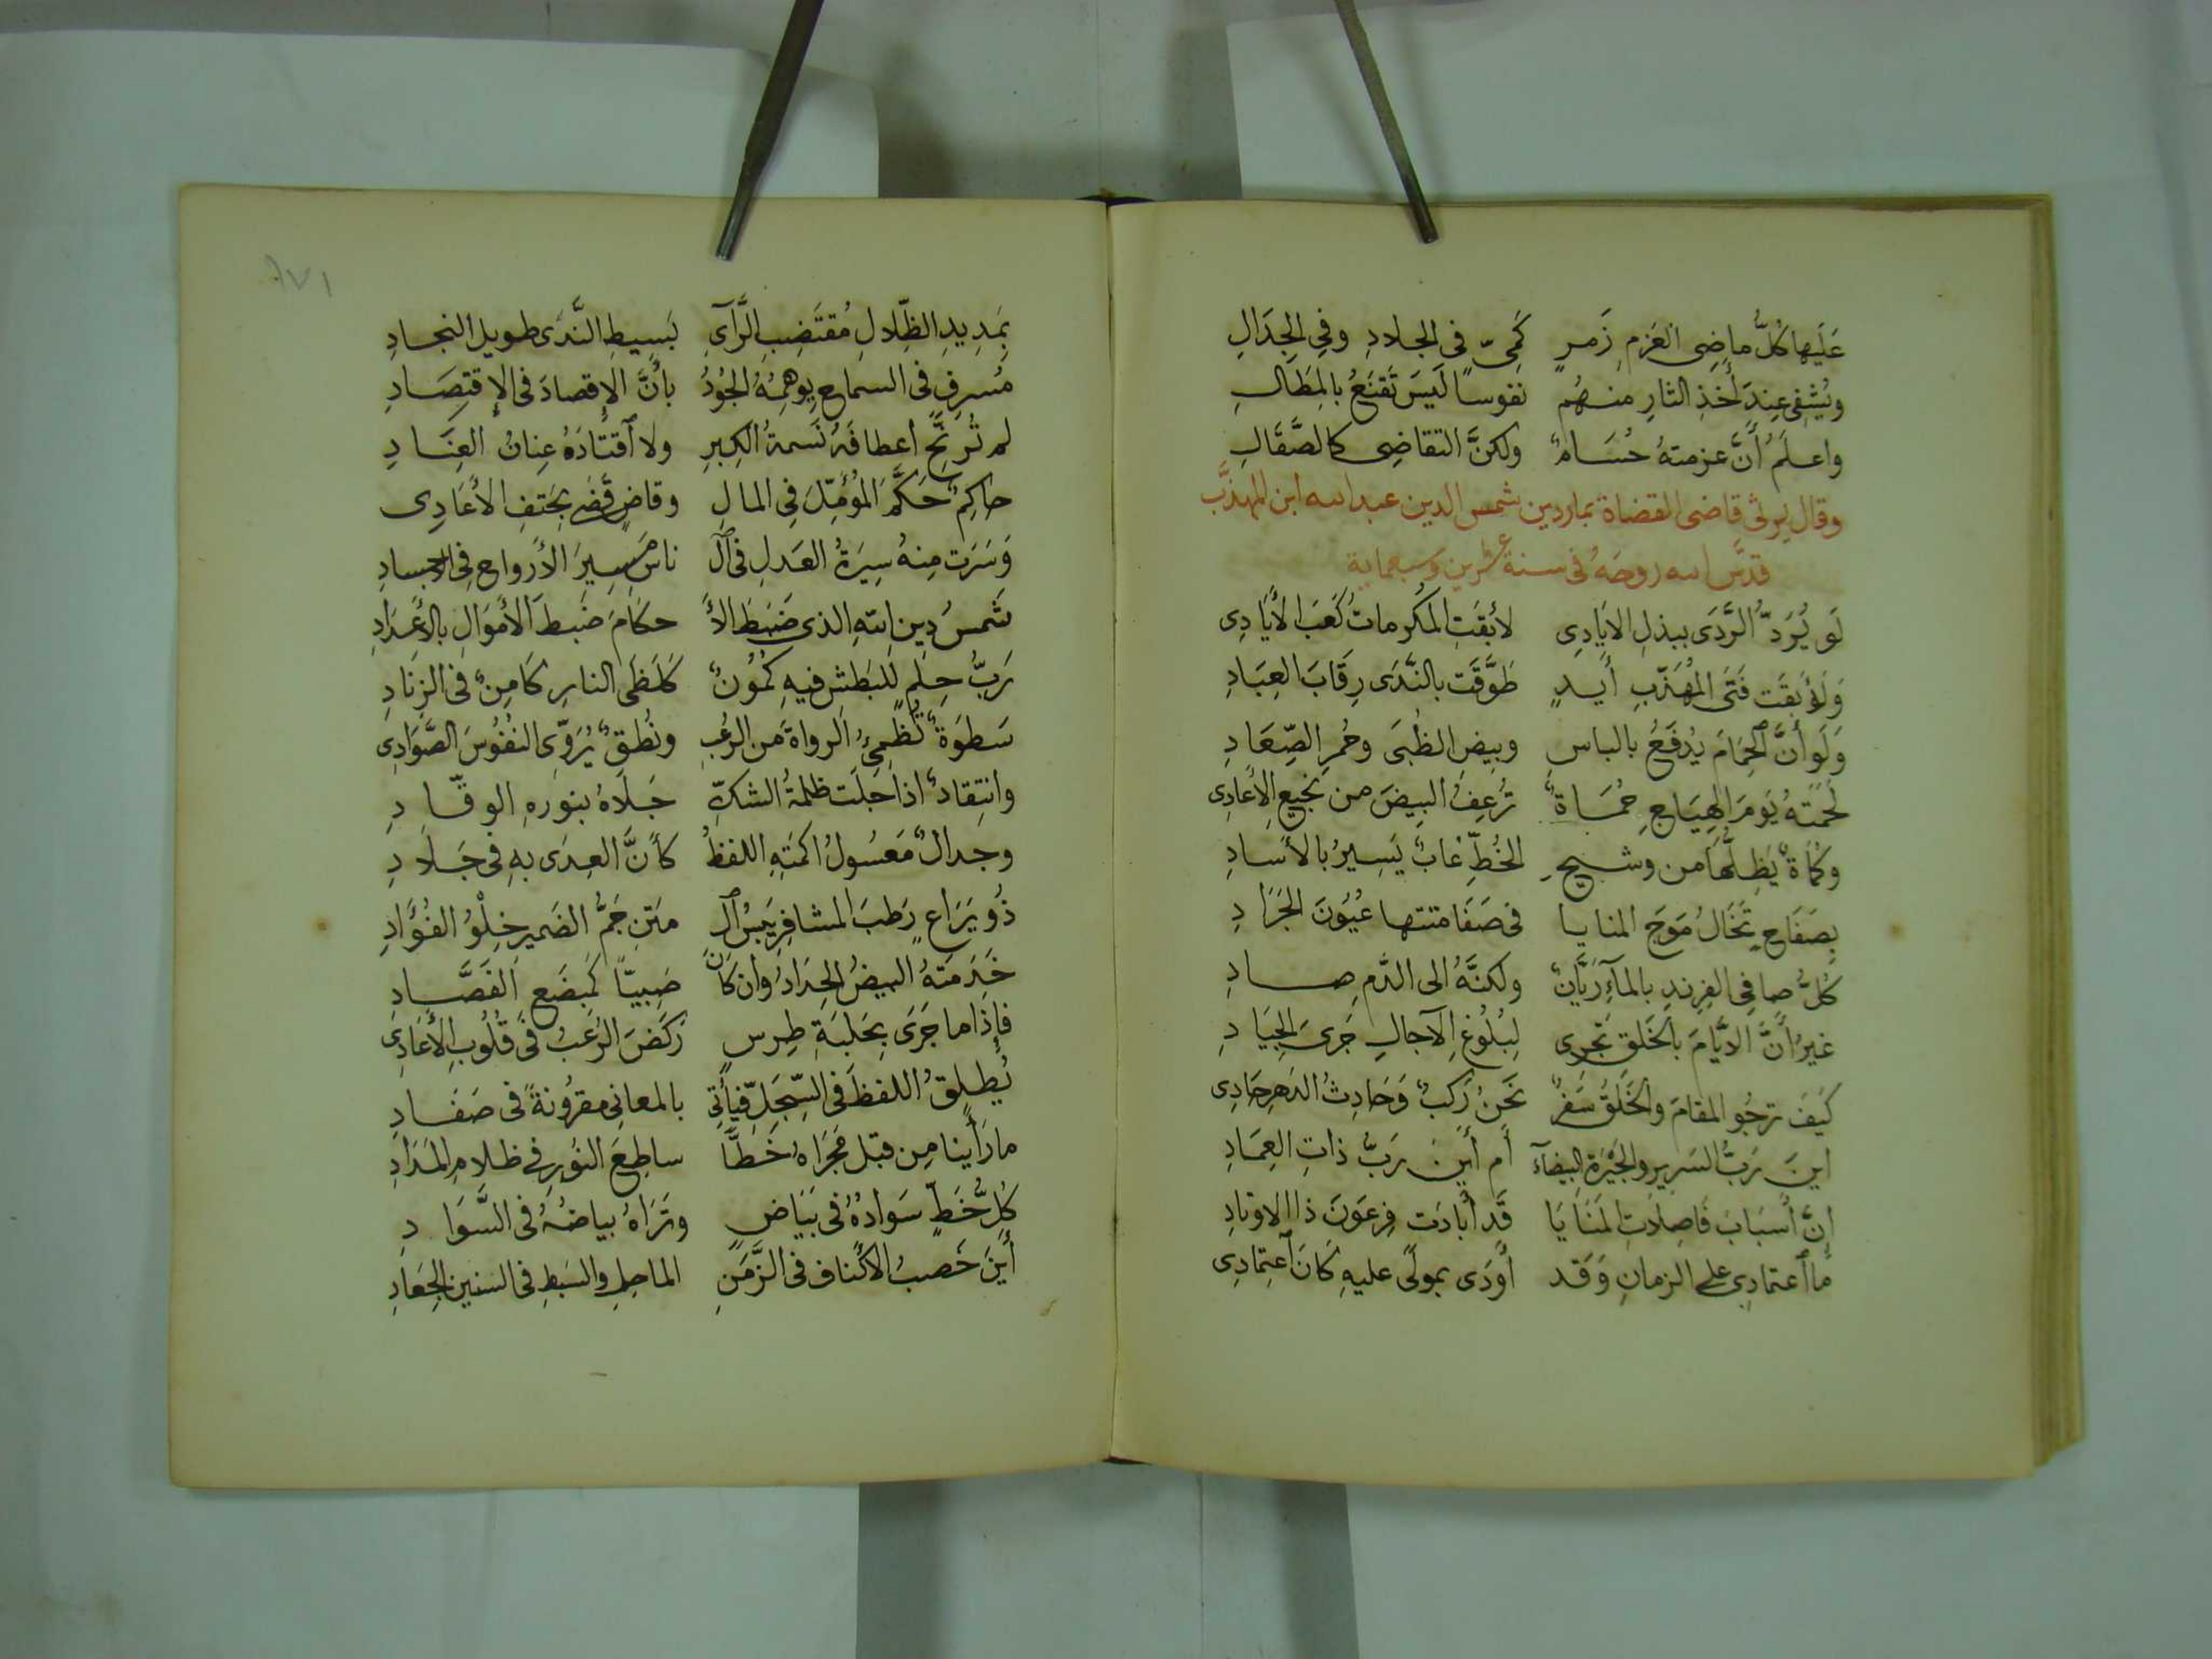 عَلَيها كُلُّ ماضِى العَزمِ زَمرٍ كَمِىّ فى الجلادِ وفى الجِدَالِ
ويُشفِى عِندَ أَخذِ الثارِ منهُم نفوسًا لَيسَ تَقنَعُ بالمِطَالِ
واعلَمُ أَنَّ عزمتهُ حُسَامٌ ولكنَّ التقاضِى كالصَّقَالِ
وقال يرثى قاضى القضاة بماردين شمس الدين عبد الله ابن المهذَّب
قدَّس الله روحَهُ فى سنة عشرين وسبعماية
لَو يُرَدُّ الرَّدَى ببذلِ الايَادِى لأبقَتِ المَكرماتُ كَعَبَ الأَيَادِى
وَلَوُ بقَت فَتَى المُهَذَّبِ أَيدٍ طَوَّقَت بالنَّدَى رِقَابَ العِبَادِ
وَلَو أَنَّ الحِمَامَ يُدفَعُ بالباسِ وبِيضِ الظُبَى وحُمرِ الصِّعَادِ
لَحَمَتهُ يَومَ الهِيَاجِ حُمَاةٌ تُرعِفُ البِيضَ من نجيعِ الأَعادِى
وكُمَاةٌ يُظِلُّهَا من وشيجِ الخُطِّ غابٌ يَسِيرُ بالأَسَادِ
بِصَفَاحٍ تَخَالُ مَوجَ المنايا فى صَفَا متنها عُيُونَ الجَرَادِ
كُلُّ صافِى الفِرِندِ بالمآءِ رَيَّانٌ ولكنَّهُ الى الدَّمِ صادِ
غيرُ أَنَّ الايَّامَ بالخَلقِ تَجرِى لِبُلُوغِ الآجالِ جَرىَ الجِيَادِ
كيَفَ ترجُو المقامَ والخَلَقُ سَفرٌ نَحنُ رَكبٌ وَحَادِثُ الدَهرِ حَادِى
اينَ رَبُّ السَرِيرِ والحِيْرَةِ البيضآءَ أَم أَينَ رَبُّ ذاتِ العِمَادِ
إِنَّ أَسبَابَ فَاصِلَاتِ المَنَايَا قَد أَبادَت فِرعَونَ ذا الاوتادِ
ما اعتمادِى على الزمانِ وَقَد أَودَى بمولًى عليهِ كَانَ اعتِمادِى
بَمدِيدِ الظِّلالِ مُقتَضِبِ الرَّآىِ بَسِيطِ النَّدَى طويلِ النجادِ
مُسرِفٍ فى السماح يوهِمُهُ الجُودُ بأَنَّ الإِقصادَ فى الإِقتِصَادِ
لم تُرَنِّح أعطافَهُ نَسمةُ الكِبرِ ولا اقتَادَهُ عِنانُ العِنَادِ
حاكِمٌ حَكَّمَ المؤُمِّلَ فى المالِ وقاضٍ قَضَى بحَتفِ الأَعَادِى
وَسَرَت مِنهُ سِيَرَةُ العَدلِ فى ال ناسِ مَسِيرَ الأَرواحِ فى الاجسادِ
شَمسُ دِينِ اللهِ الذى ضَبَطَ الأَ حكامَ ضَبطَ الأَموَالِ بالأَعدَادِ
رَبُّ حِلمٍ لِلبَطشِ فيهِ كُمُونٌ كَلَظَى النارِ كَامِنٌ فى الزِنَادِ
سَطوَةٌ تُظمِئُ الرواةَ من الرُعبِ ونُطقٌ يُرَوّى النُفُوسَ الصَّوَادِى
وانتِقادٌ اذا جَلَت ظلمةُ الشكِّ جَلَاهُ بنورهِ الوقّادِ
وجدالٌ مَعسُولُ اكمَتِهِ اللفظُ كأَنَّ العِدَى بهِ فى جَلَادِ
ذُو يَرَاعٍ رَطبَ المشافِرِ يَبسُ ال مَتنِ جَمُّ الضَميرِ خِلْوُ الفُؤَادِ
خَدَمَتهُ البيضُ الحِدَادُ وان كَانَ ضِبيًّا كَمِبضَعِ الفَصَّادِ
فإِذا ما جَرَى بِحَلبَةِ طِرسٍ رَكَضَ الرُعبُ فى قُلُوبِ الأَعَادِى
يُطلِقُ اللفظَ فى السِّجَلِّ فيأَتِى بالمعانِى مقرُونةً فى صَفَادِ
ما رَأَينا مِن قبَل مَجرَاهُ خَطًّا ساطِعَ النُورِ فى ظلامِ المَدَادِ
كُلُّ خَطٍّ سَوادُهُ فى بَيَاضٍ وتَرَاهُ بياضُهُ فى السَّوَادِ
أَينَ خَصبُ الاكَناف فى الزَّمَنِ الماحِلِ والسَبطِ فى السَنينِ الجِعَادِ